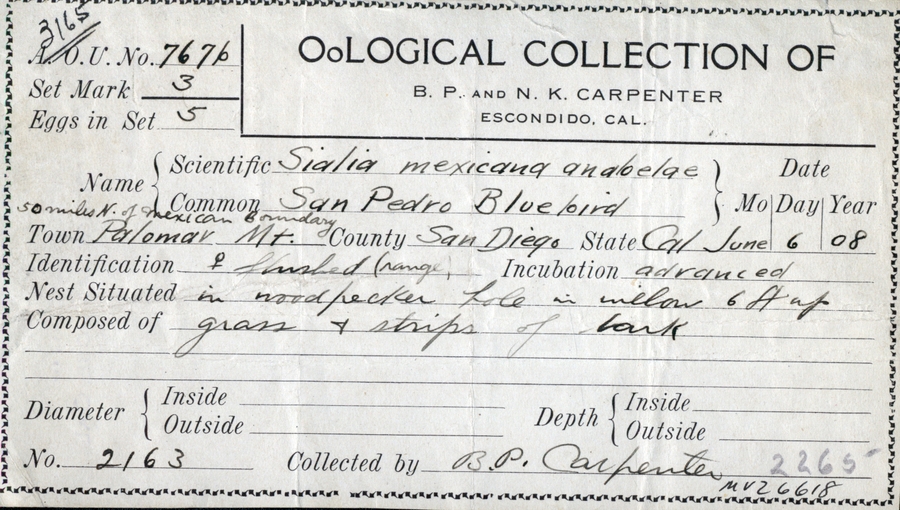 3165
A.O.U. No. 767b
Set Mark 3
Eggs in Set 5
OoLOGICAL COLLECTION OF
B. P. AND N. K. CARPENTER
ESCONDIDO, CAL.
Name { Scientific Sialia mexicana anabelae } Date
Common San Pedro Bluebird Mo Day Year
50 miles N. of Mexican Boundary
Town Palomar Mt. County San Diego State Cal June 6 08
Identification ♀ flushed (range) Incubation advanced
Nest Situated in woodpecker hole in willow 6 ft up
Composed of grass + strips of bark
Diameter { Inside Depth { Inside
Outside Outside
No. 2163 Collected by B.P. Carpenter 2265
MVZ6618